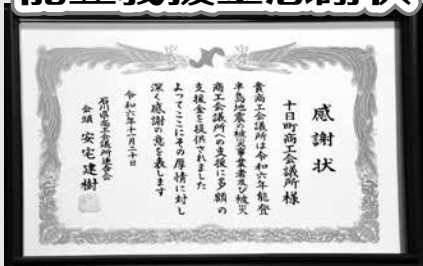 能登義援金感謝状
感謝状
十日町商工会議所様
貴商工会議所は令和六年能登
半島地震の被災事業者及び被災
商工会議所への支援に多額の
支援金を提供されました
よってここにその厚情に対し
深く感謝の意を表します
令和六年十一月二十日
石川県商工会議所連合会
会頭 安宅建樹